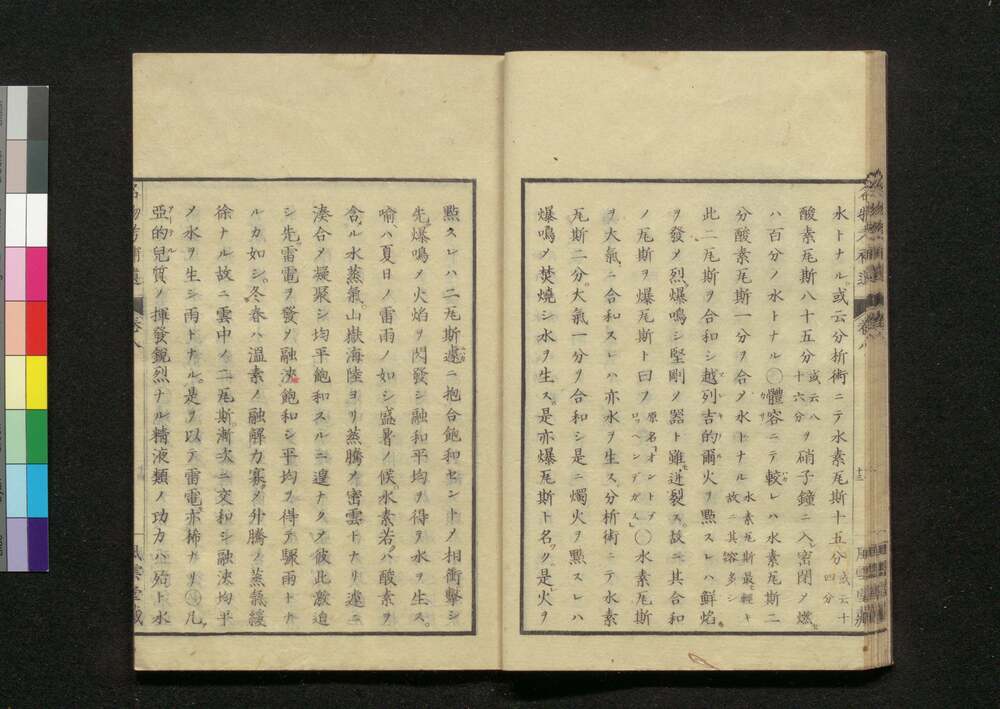 水トナル。或云分析術ニテ水素瓦斯十五分或云十四分
酸素瓦斯八十五分或云八十六分ヲ硝子鐘ニ入密閉メ燃セ
ハ百分ノ水トナル○體容ニテ較レハ水素瓦斯二
分酸素瓦斯一分ヲ合メ水トナル水素瓦斯最輕キ故ニ其容多シ
此二瓦斯ヲ合和シ越列吉的爾火ヲ點スレハ鮮焰
ヲ發メ烈爆鳴シ堅剛ノ器ト雖迸裂ス。故ニ其合和
ノ瓦斯ヲ爆瓦斯ト曰フ原名「オントプロッヘンデガス」○水素瓦斯
ヲ大氣ニ合和スレハ亦水ヲ生ス。分析術ニテ水素
瓦斯二分大氣一分ヲ合和シ是ニ燭火ヲ點スレハ
爆鳴メ焚燒シ水ヲ生ス。是亦爆瓦斯ト名ク。是火ヲ
點スレハ二瓦斯遽ニ抱合飽和セントメ相衝擊シ
先爆鳴メ火焰ヲ閃發シ融和平均ヲ得テ水ヲ生ス。
喩ハ夏日ノ雷雨ノ如シ盛暑ノ候水素若ハ酸素ヲ
含ル水蒸氣山嶽海陸ヨリ蒸騰メ密雲トナリ遽ニ
湊合メ凝聚シ均平飽和スルニ遑ナクメ彼此激迫
シ先雷電ヲ發メ融浹飽和シ平均ヲ得テ驟雨トナ
ルカ如シ。冬春ハ溫素ノ融解力寡メ升騰ノ蒸氣緩
徐ナル故ニ雲中ノ二瓦斯漸次ニ交和シ融浹均平
メ水ヲ生シ雨トナル。是ヲ以テ雷電亦稀ナリ○凡
亞的兒質ノ揮發銳烈ナル精液類ノ功力ハ殆ト水